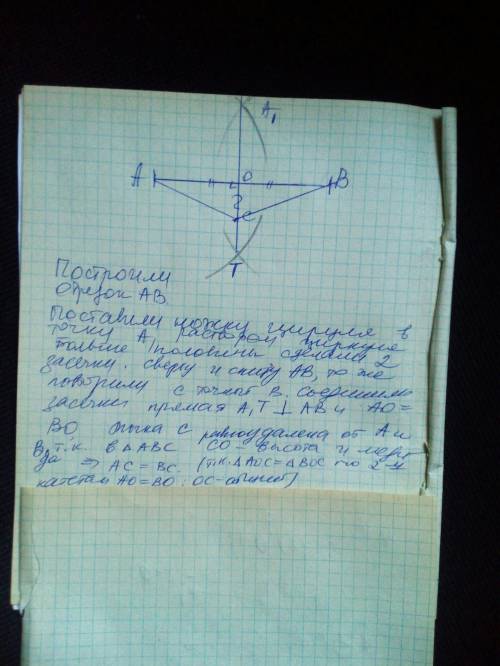 A₁
A
O
B
2
C
T
Построили
отрезок AB.
Поставили ножку циркуля в
точку A, раствором циркуля
больше половины сделали 2
засечки сверху и снизу AB, то же
повторили с точкой B. Соединили
засечки прямая A₁T ⊥ AB и AO=
BO точка C равноудалена от A и
B, т.к. в △ABC CO высота и медиа
на ⇒ AC = BC. (т.к. △AOC = △BOC по 2-м
катетам AO=BO, OC-общий)